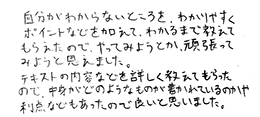 自分がわからないところを、わかりやすく
ポイントなどを加えて、わかるまで教えて
もらえたので、やってみようとか、頑張って
みようと思えました。
テキストの内容などを詳しく教えてもらった
ので、中身がどのようなものが書かれているのかや
利点などもあったので良いと思いました。